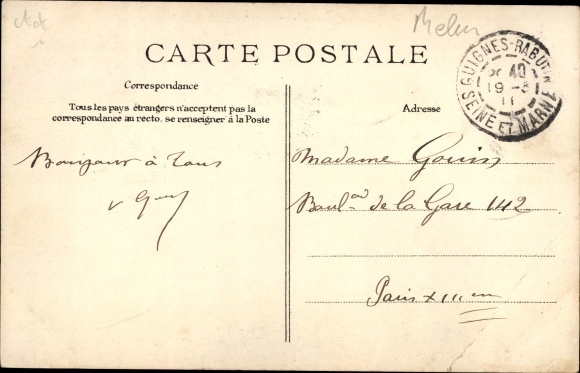 Melun
CARTE POSTALE
Correspondance
Tous les pays étrangers n'acceptent pas la
correspondance au recto. se renseigner à la Poste
Adresse
GUIGNES-RABUTIN
19 -3
11
SEINE ET MARNE
Bonjour à Tous
Madame Gouin
Boul^ard de la Gare 142
Paris XIII em